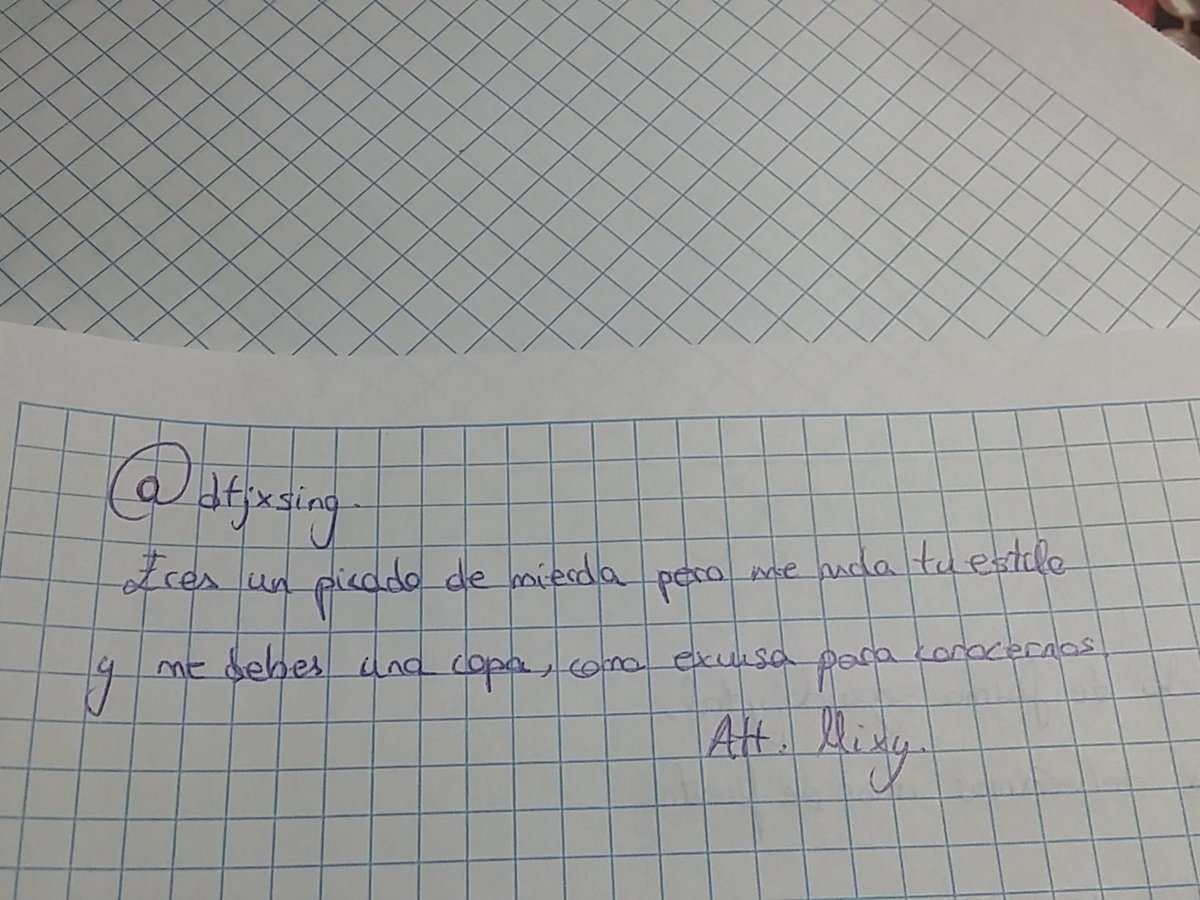 @dtjxsing.
Eres un picado de mierda pero me mola tu estilo
y me debes una copa, como excusa para conocernos
Att. Mixy.